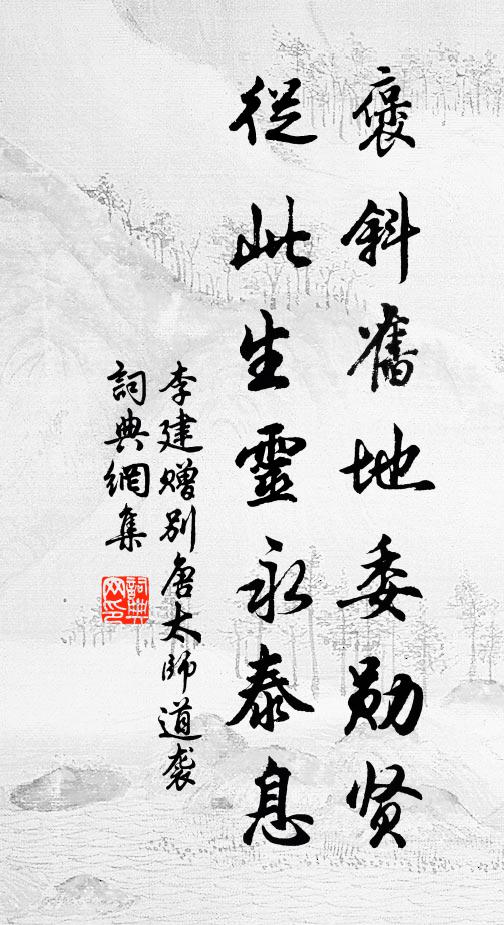 褒斜舊地委勋贤
從此生靈永泰息
李建赠别唐太師道袭
詞典網集
詞典網印